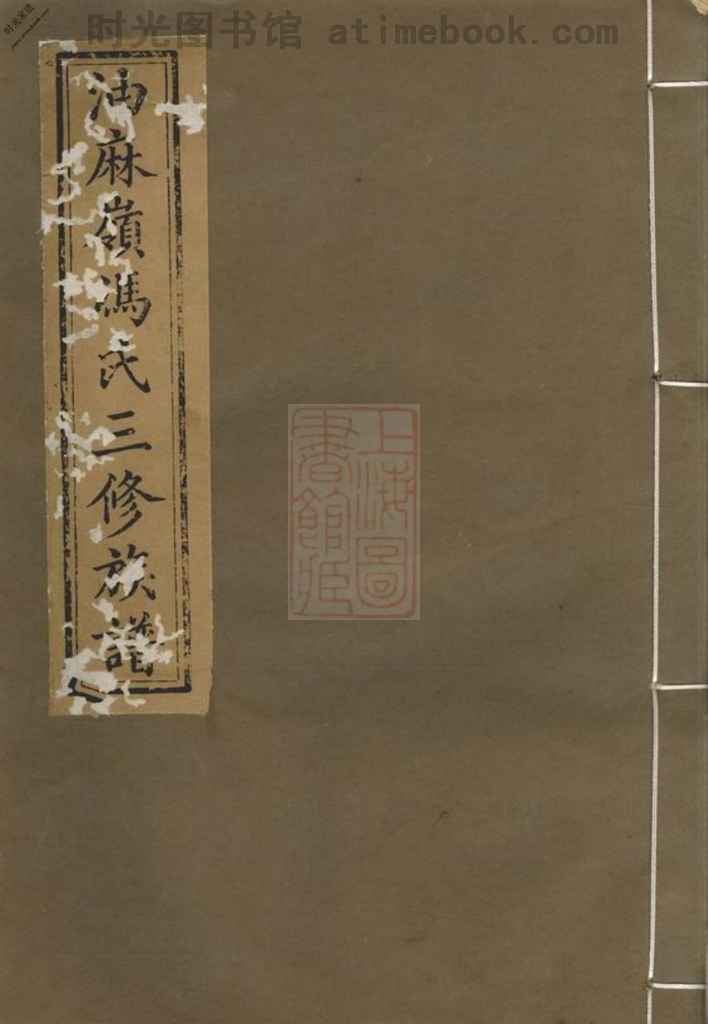 时光图书馆 atimebook.com
油麻嶺馮氏三修族譜
上海圖
書館藏